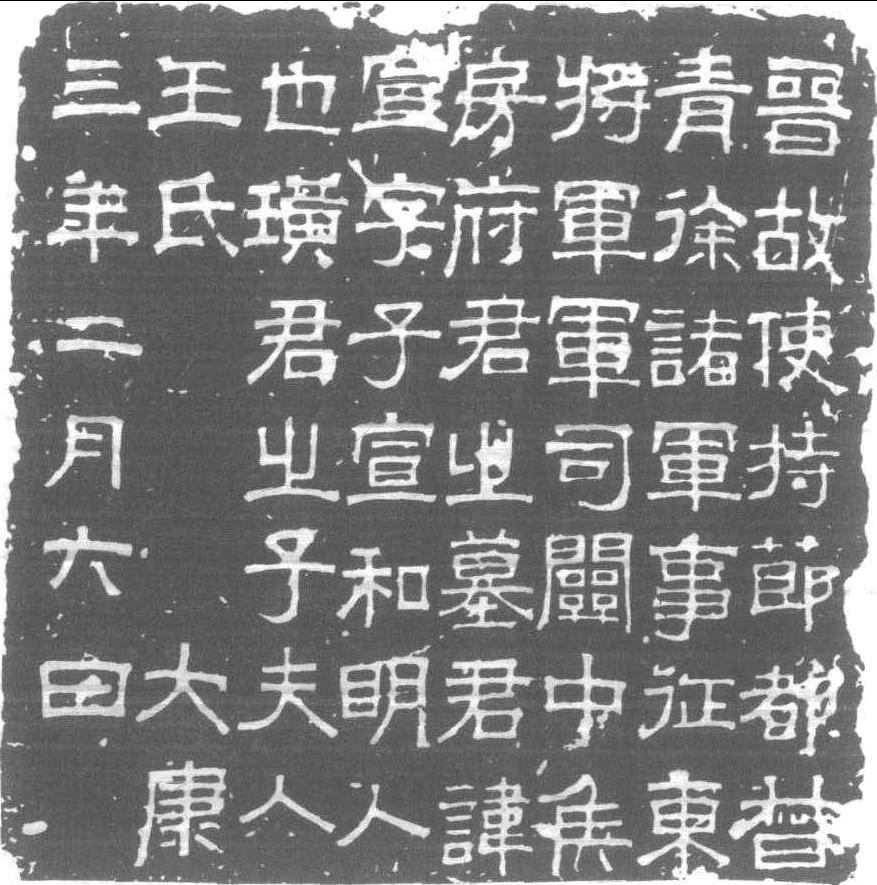 晉故使持節都督
青徐諸軍事征東
將軍軍司關中侯
房府君之墓君諱
宣字子宣和明人
也璜君之子夫人
王氏　　　大康
三年二月六日